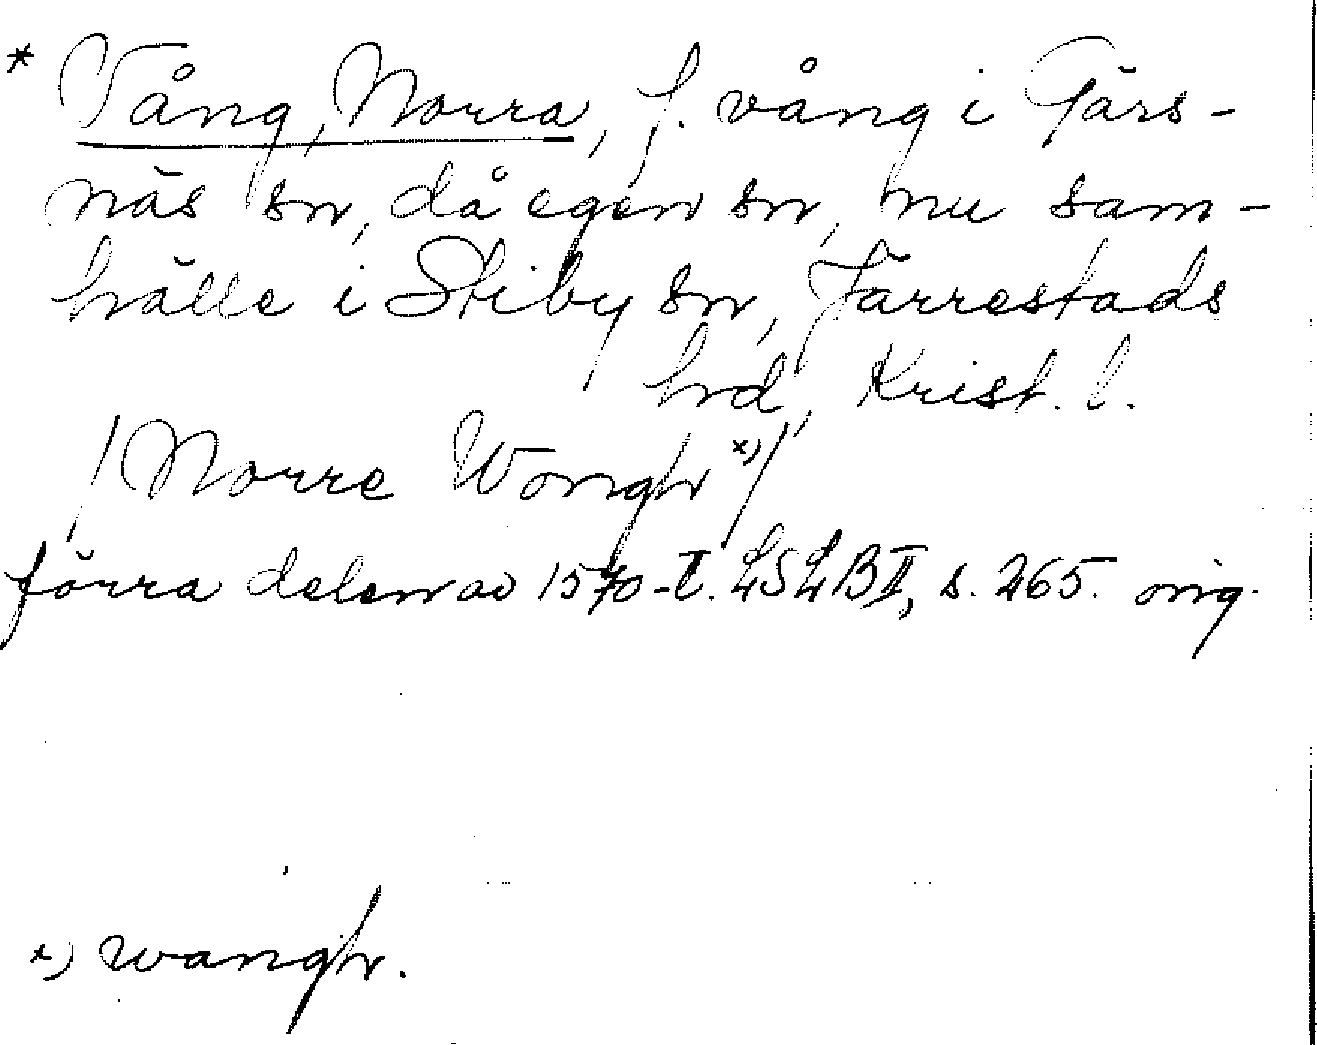 * Vång, Norra, f. vång i Gärs-
näs sn, då egen sn, nu sam-
hälle i Stiby sn, Järrestads
hd, Krist. l.
/Norre Wongh x)/
förra delen av 1570-t. LSLB II, s. 265. orig.
x) wangh.